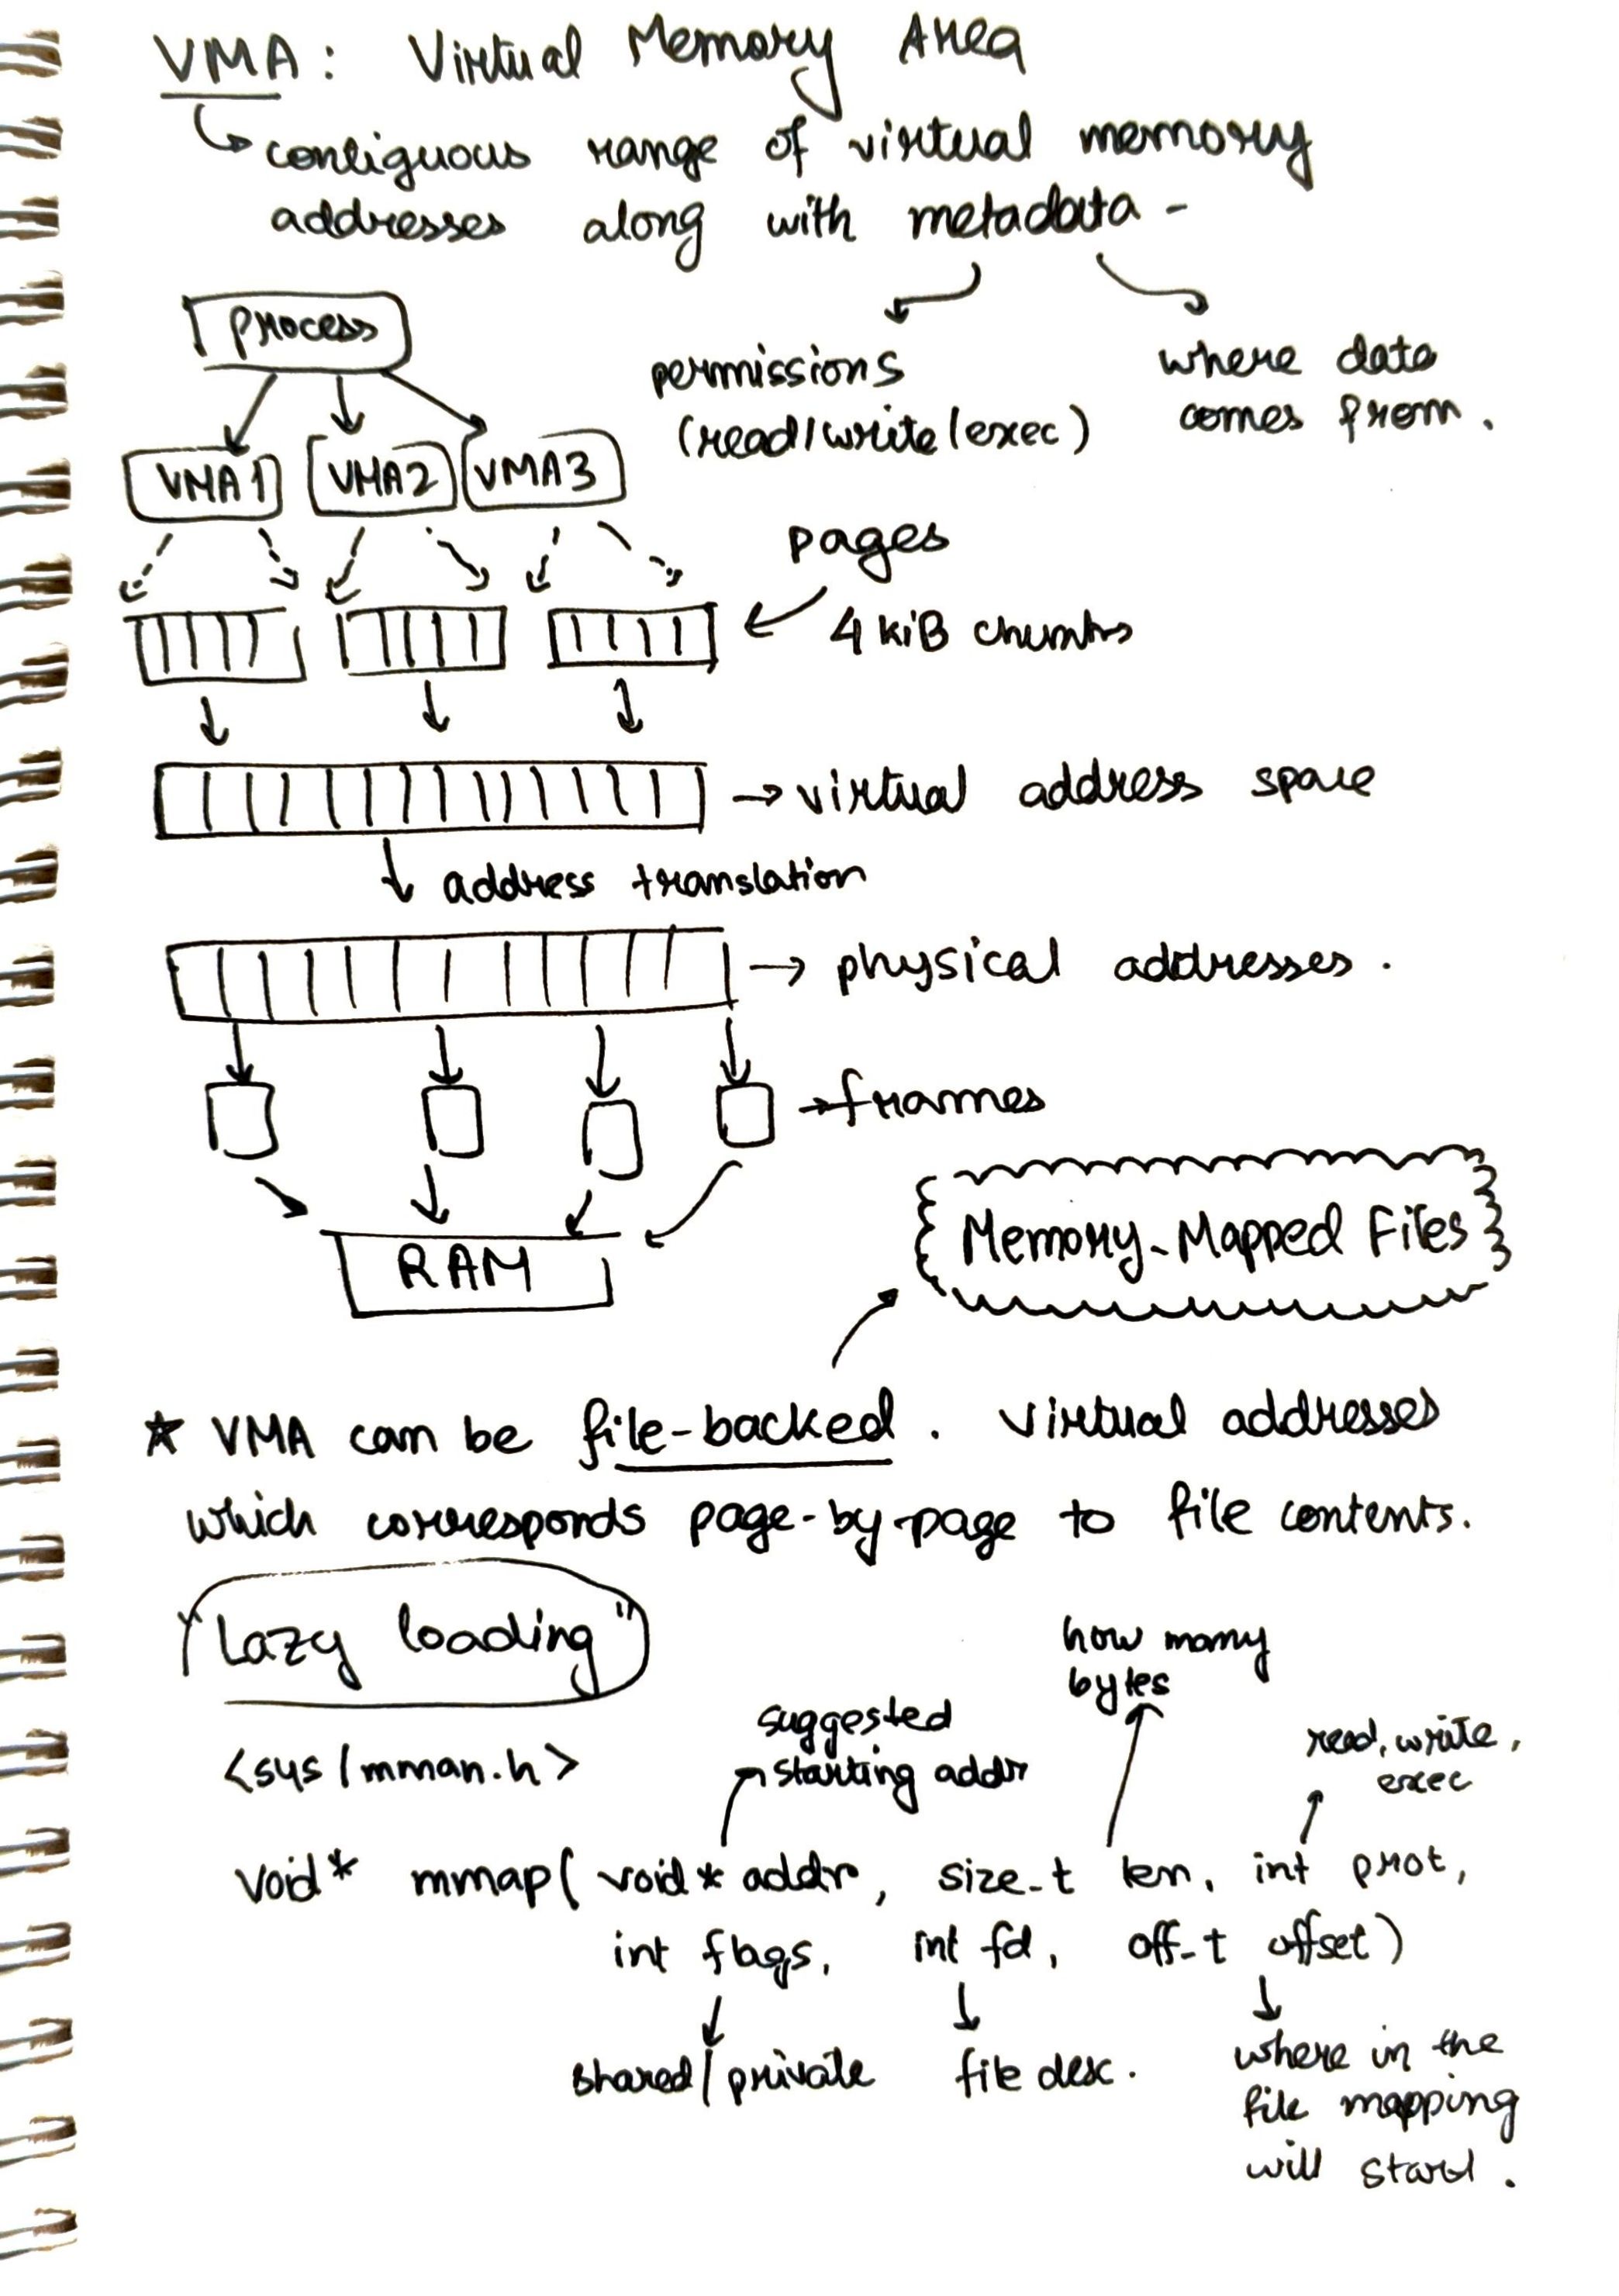 VMA: Virtual Memory Area
contiguous range of virtual memory
addresses along with metadata -
process
permissions
(read/write/exec)
where data
comes from.
VMA1 VMA2 VMA3
pages
4 KiB chunks
virtual address space
address translation
physical addresses.
frames
RAM
Memory-Mapped Files
* VMA can be file-backed. Virtual addresses
which corresponds page-by-page to file contents.
"Lazy loading"
how many
bytes
suggested
starting addr
read, write,
exec
<sys/mman.h>
void* mmap( void* addr, size_t len, int prot,
int flags, int fd, off_t offset)
shared/private
file desc.
where in the
file mapping
will start.